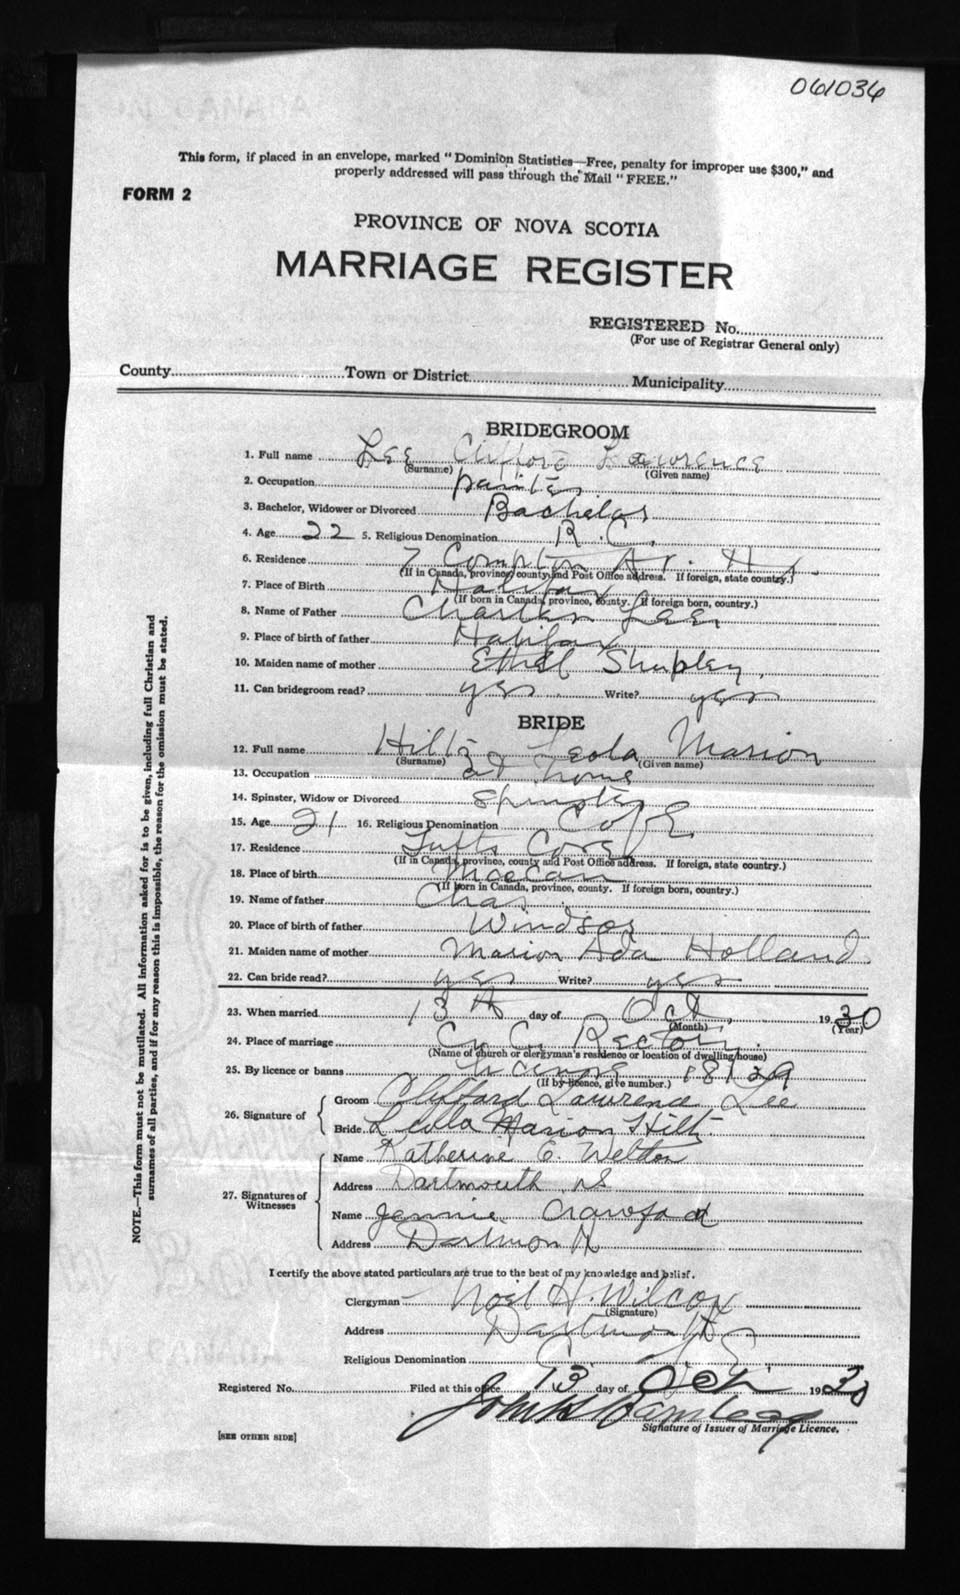 061036
This form, if placed in an envelope, marked "Dominion Statistics—Free, penalty for improper use $300," and
properly addressed will pass through the Mail "FREE."
FORM 2
PROVINCE OF NOVA SCOTIA
MARRIAGE REGISTER
REGISTERED No.
(For use of Registrar General only)
County Town or District Municipality
BRIDEGROOM
1. Full name Lee Clifford Lawrence
(Surname) (Given name)
2. Occupation painter
3. Bachelor, Widower or Divorced Bachelor
4. Age 22 5. Religious Denomination R.C.
6. Residence 7 Compton Av. Hx.
(If in Canada, province, county and Post Office address. If foreign, state country.)
7. Place of Birth Halifax
(If born in Canada, province, county. If foreign born, country.)
8. Name of Father Charles Lee
9. Place of birth of father Halifax
10. Maiden name of mother Ethel Shupley
11. Can bridegroom read? yes Write? yes
BRIDE
12. Full name Hiltz Leola Marion
(Surname) (Given name)
13. Occupation at home
14. Spinster, Widow or Divorced Spinster
15. Age 21 16. Religious Denomination C of E
17. Residence Tufts Cove
(If in Canada, province, county and Post Office address. If foreign, state country.)
18. Place of birth Maccan
(If born in Canada, province, county. If foreign born, country.)
19. Name of father Chas.
20. Place of birth of father Windsor
21. Maiden name of mother Marion Ada Holland
22. Can bride read? yes Write? yes
23. When married 13th day of Oct. 1930
(Month) (Year)
24. Place of marriage Rectory.
(Name of church or clergyman's residence or location of dwelling house)
25. By licence or banns Licence 18139
(If by licence, give number.)
26. Signature of
Groom Clifford Lawrence Lee
Bride Leola Marion Hiltz
27. Signatures of Witnesses
Name Katherine E. Weldon
Address Dartmouth NS
Name Jennie Crawford
Address Dartmouth
I certify the above stated particulars are true to the best of my knowledge and belief.
Clergyman Noel H. Wilcox
(Signature)
Address Dartmouth
Religious Denomination C. of E.
Registered No. Filed at this office 13 day of Oct 1930
Signature of Issuer of Marriage Licence.
[SEE OTHER SIDE]
NOTE.—This form must not be mutilated. All information asked for is to be given, including full Christian and
surnames of all parties, and if for any reason this is impossible, the reason for the omission must be stated.